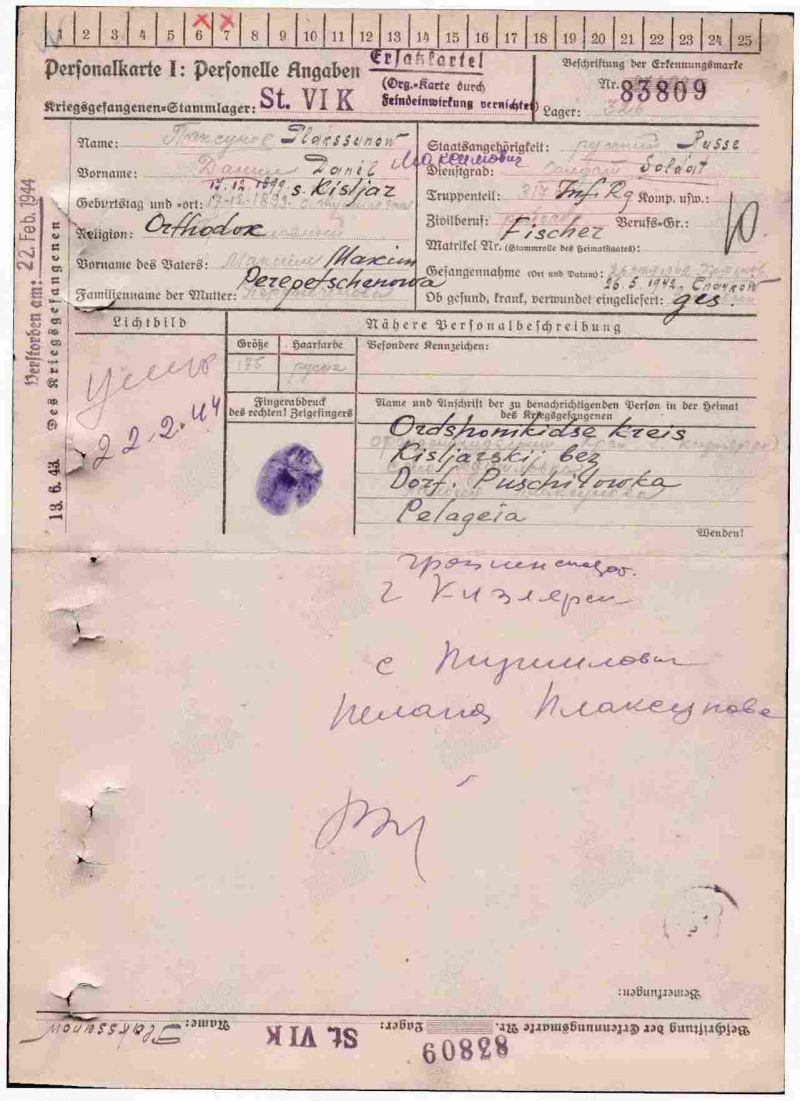 1 2 3 4 5 6 7 8 9 10 11 12 13 14 15 16 17 18 19 20 21 22 23 24 25
Personalkarte I: Personelle Angaben
Ersatzkartei
(Org.-Karte durch
Feindeinwirkung vernichtet)
Kriegsgefangenen-Stammlager: St. VI K
Beschriftung der Erkennungsmarke
Nr. 83809
Lager: 326
Name: Плаксунов Plakssunow
Vorname: Данил Daniel Максимович
17.12.1899 s. Kisljar
Geburtstag und -ort: 17-12-1899
Religion: Orthodox
Vorname des Vaters: Максим Maxim
Perepetschenowa
Familienname der Mutter:
Staatsangehörigkeit: русский Russe
Dienstgrad: Солдат Soldat
Truppenteil: 317 Inf. Rg Komp. usw.:
Zivilberuf: Berufs-Gr.: 10.
Fischer
Matrikel Nr. (Stammrolle des Heimatstaates):
Gefangennahme (Ort und Datum):
26.5.1942.
Ob gesund, krank, verwundet eingeliefert: ges.
Verstorben am: 22. Feb. 1944
13. 6. 43
Des Kriegsgefangenen
Lichtbild
умер
22.2.44
Nähere Personalbeschreibung
Größe Haarfarbe Besondere Kennzeichen:
175 русые
Fingerabdruck
des rechten! Zeigefingers
Name und Anschrift der zu benachrichtigenden Person in der Heimat
des Kriegsgefangenen
Ordshonikidse Kreis
Kisljarski bez
Dorf. Puschilowka
Pelageia
Wenden!
г Кизляр
с
Пелагея Плаксунова
Bemerkungen:
Beschriftung der Erkennungsmarke Nr. 83809
Lager: St. VI K
Name: Plakssunow